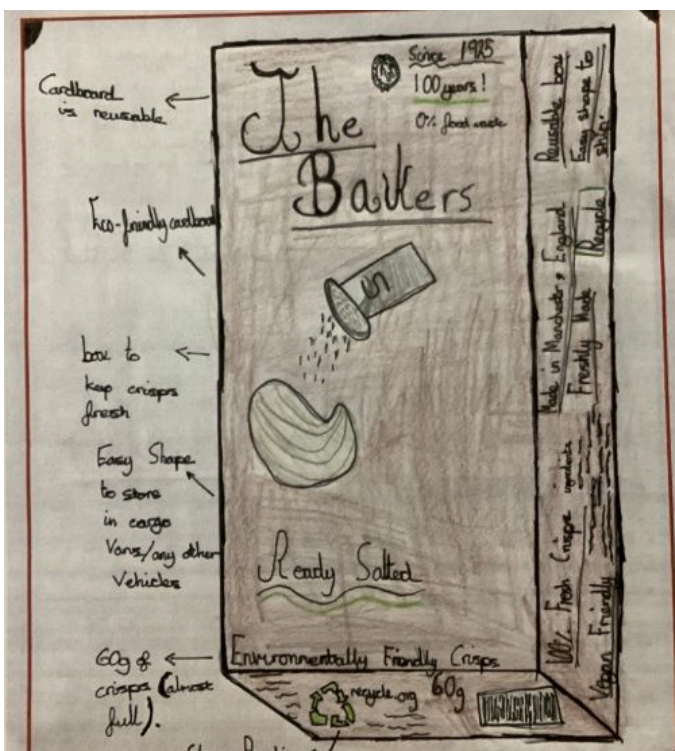 Cardboard
is reusable
Eco-friendly cardboard
box to
keep crisps
fresh
Easy Shape
to store
in cargo
Vans/any other
Vehicles
60g of
crisps (almost
full).
The
Bakers
Since 1925
100 years!
0% food waste
S
Ready Salted
Environmentally Friendly Crisps
Reusable box
Easy shape to
ship.
Made in Manchester, England
Recycle
Freshly Made
100% Fresh Crisps
ingredients
Vegan Friendly
recycle.org
60g